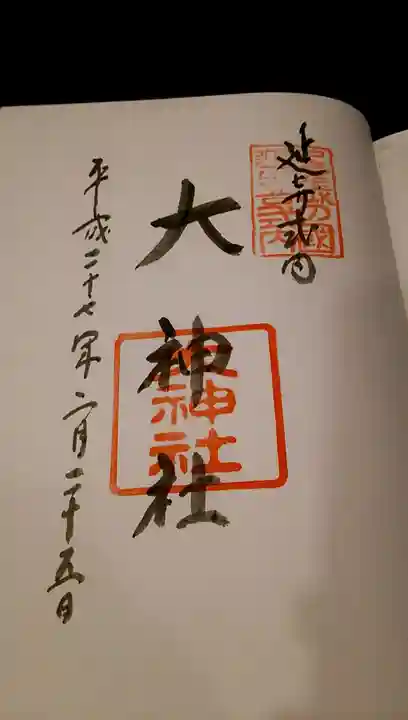 延喜式内
大神社
大神社
平成二十七年二月二十五日